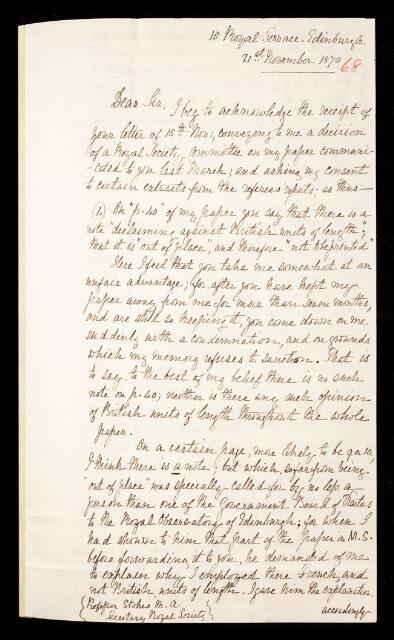 15 Royal Terrace. Edinburgh
21st November 1870
68
Dear Sir, I beg to acknowledge the receipt of
your letter of 15th Nov:, conveying to me a decision
of a Royal Society Committee on my paper communi-
-cated to you last March; and asking my consent
to certain extracts from the referees reports; as thus—
(1.) On "p. 40" of my paper you say that there is a
note "declaiming against British units of length";
that it is "out of place", and therefore "not to be printed"
Here I feel that you take me somewhat at an
unfair advantage; for after you have kept my
paper away from me for more than seven months,
and are still so keeping it, you come down on me
suddenly with a condemnation, and on grounds
which my memory refuses to sanction. That is
to say, to the best of my belief there is no such
note on p. 40; neither is there any such opinion
of British units of length throughout the whole
paper.
On a certain page, more likely to be
I think there is a note, but which, so far from being
"out of place" was specially called for by no less a
person than one of the Government Board of Visitors
to the Royal Observatory of Edinburgh; for when I
had shown to him that part of the Paper in M.S.
before forwarding it to you, he demanded of me
to explain why I employed there French, and
not British units of length. I gave him the explanation
accordingly
Professor Stokes M. A.
Secretary Royal Society